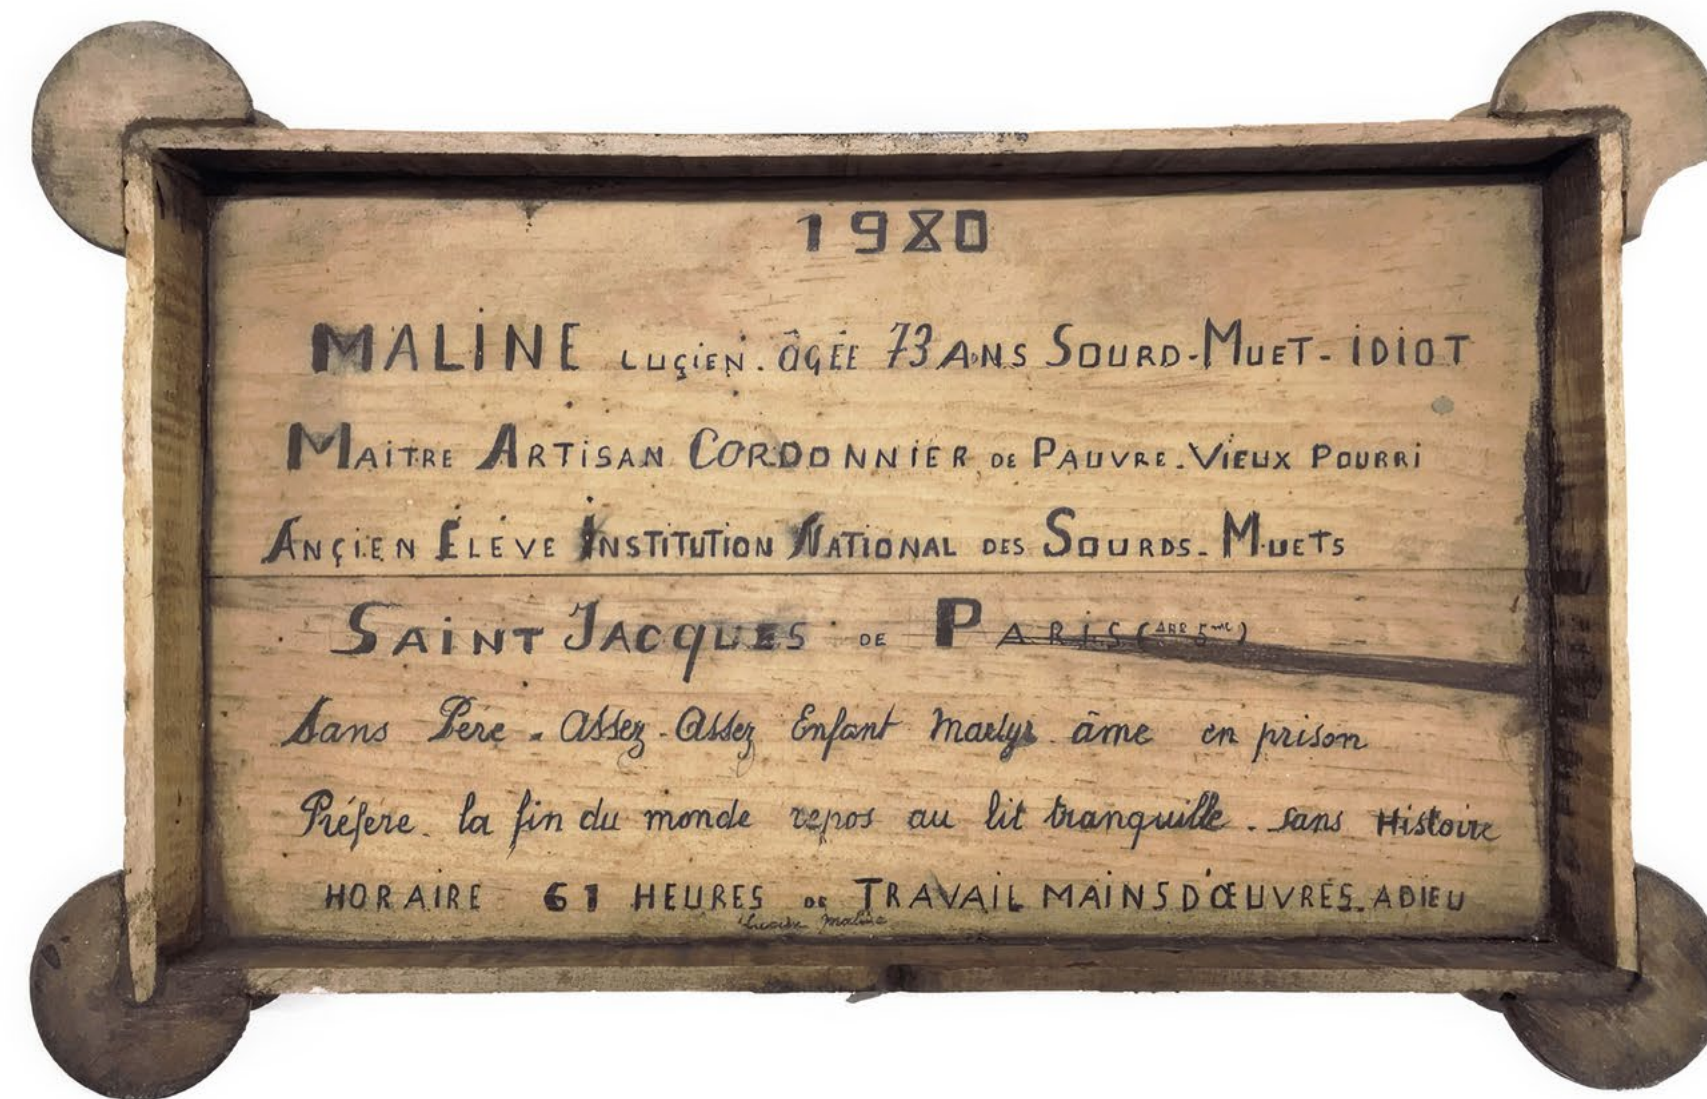 1980
MALINE LUÇIEN. ÂGÉE 73 ANS SOURD-MUET-IDIOT
MAITRE ARTISAN CORDONNIER DE PAUVRE-VIEUX POURRI
ANÇIEN ÉLÈVE INSTITUTION NATIONAL DES SOURDS-MUETS
SAINT JACQUES DE PARIS (ARR 5me)
Sans Père - Assez - Assez Enfant Martyr âme en prison
Préfère la fin du monde repos au lit tranquille - sans Histoire
HORAIRE 61 HEURES DE TRAVAIL MAINS D'ŒUVRES. ADIEU
Lucien Maline